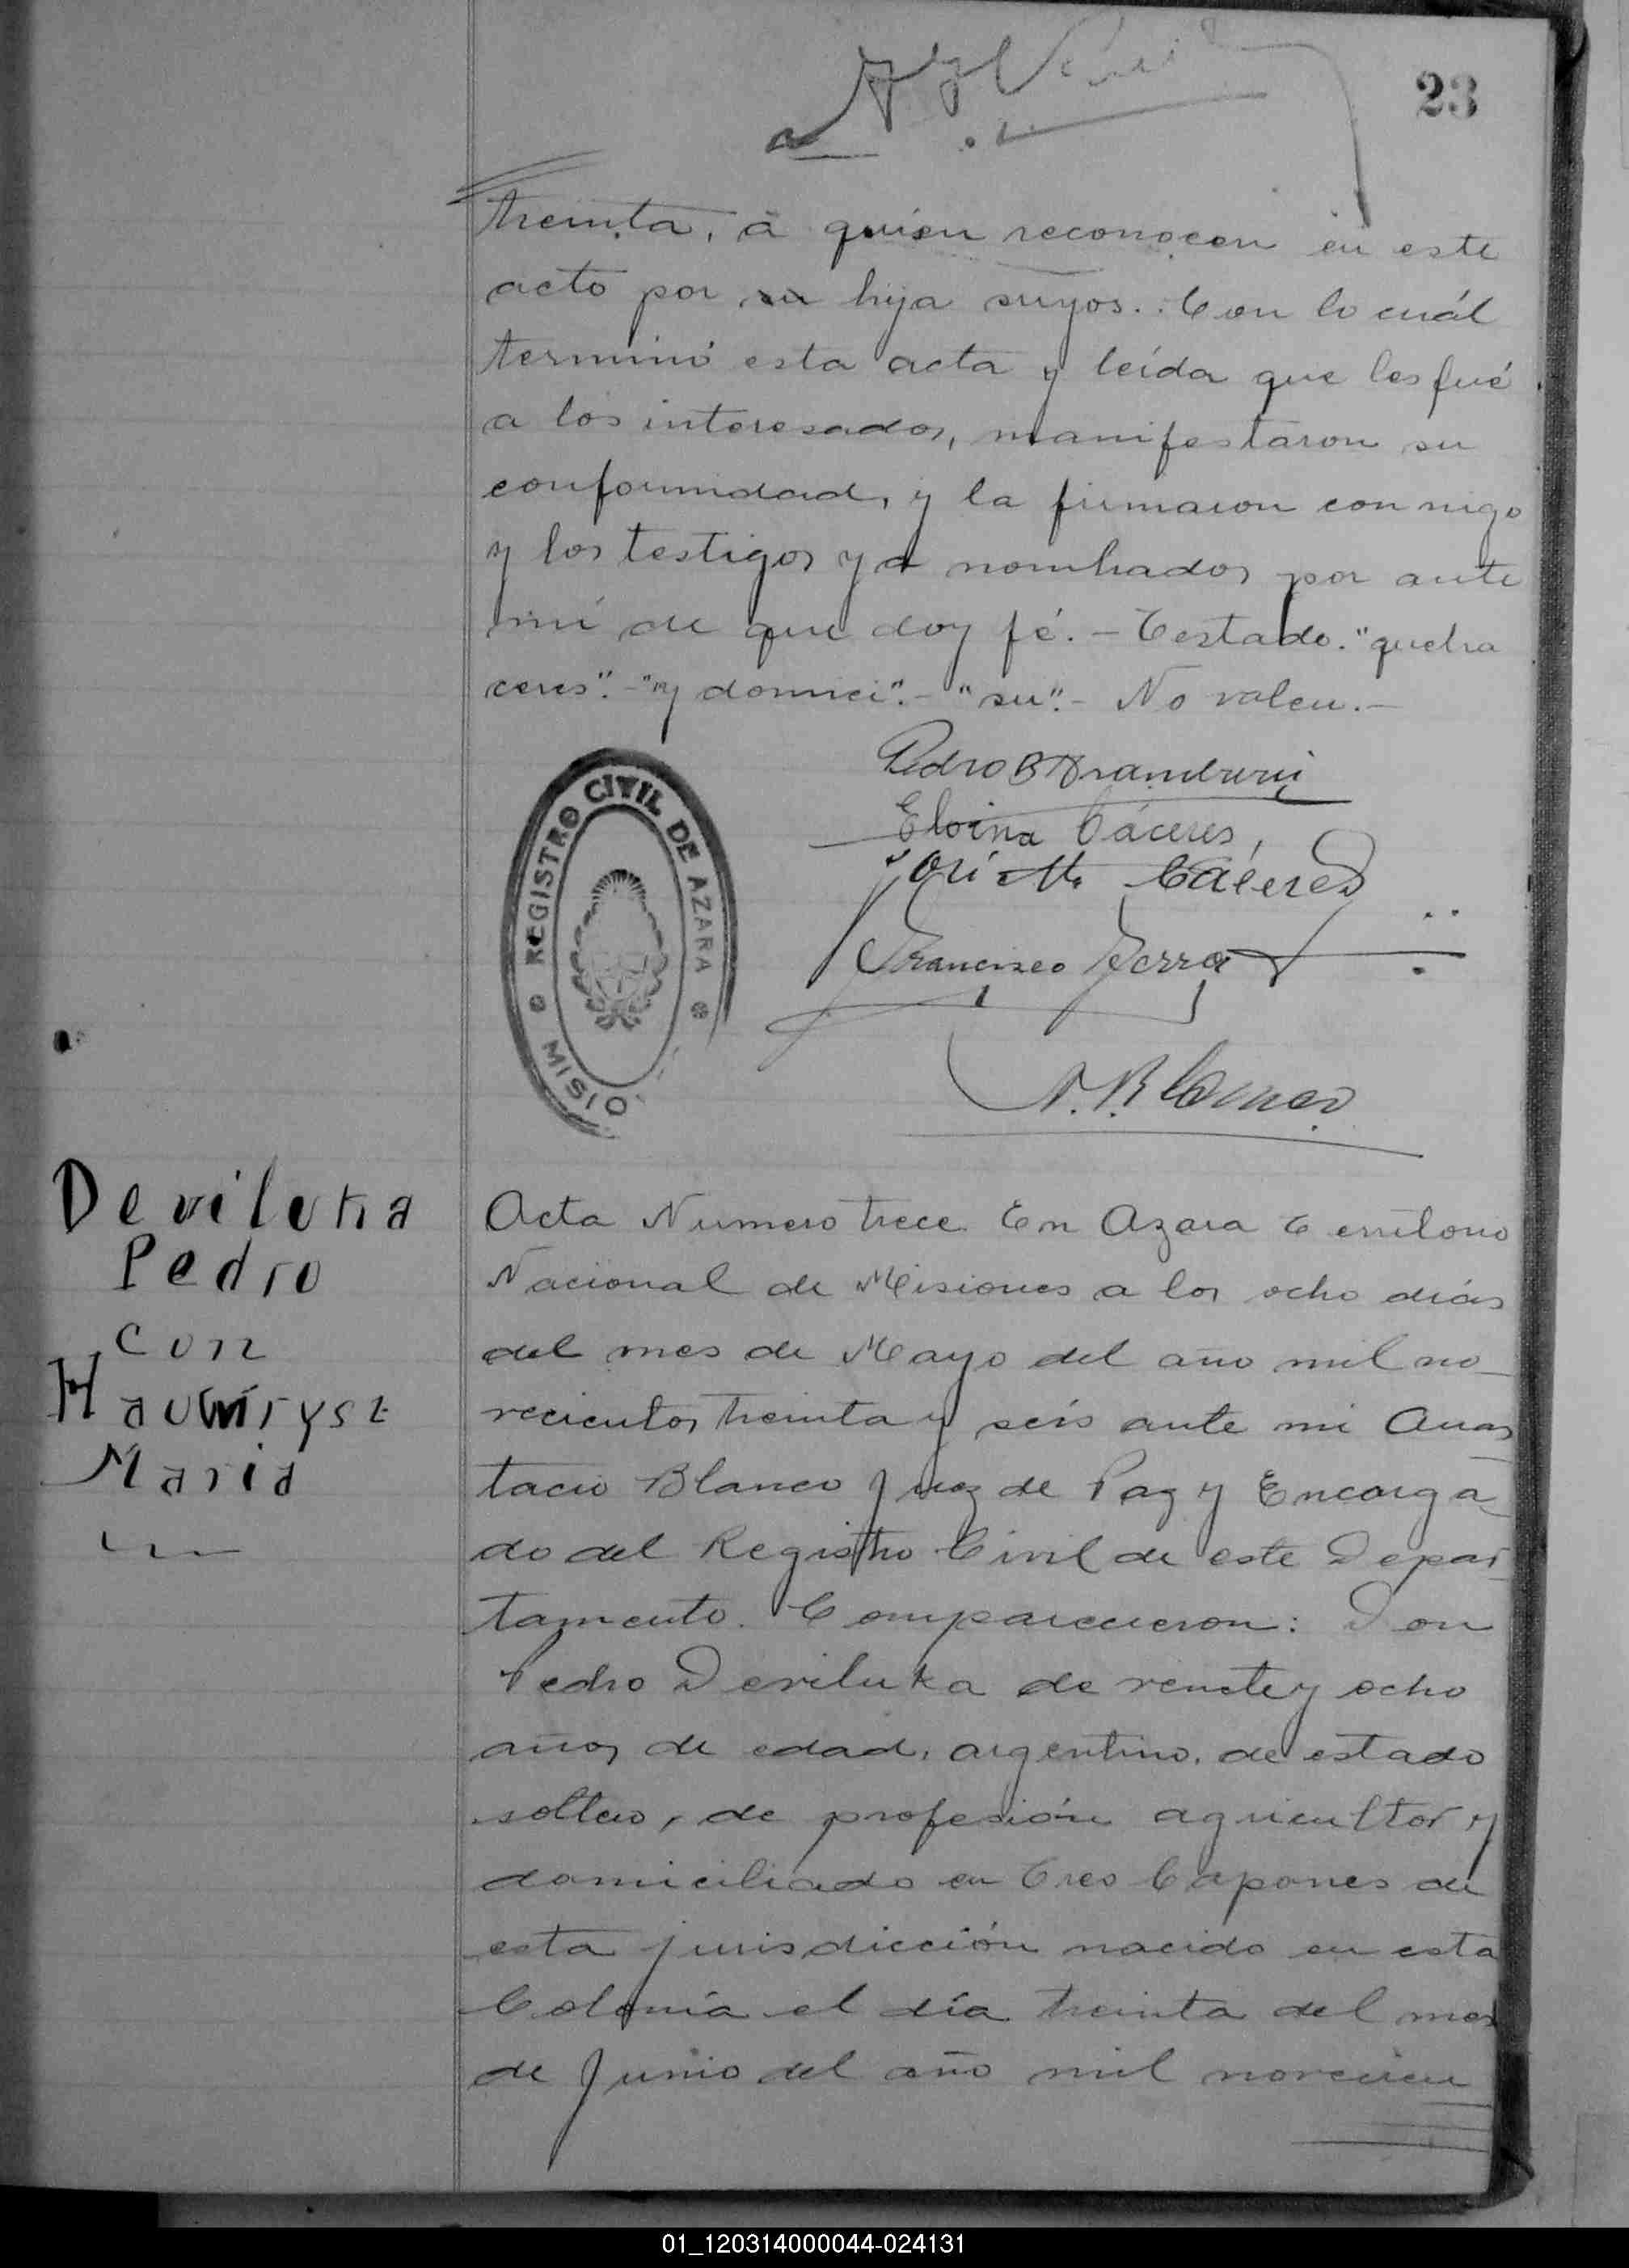 23
treinta, a quien reconocen en este
acto por su hija suyos.. Con lo cuál
terminó esta acta y leída que les fué
a los interesados, manifestaron su
conformidad, y la firmaron con migo
y los testigos ya nombrados por ante
mi de que doy fé. - Testado. "queha
ceres". - "y domici". - "su". - No valen. -
Pedro B Aramburu
Elvina Cáceres,
José M. Cáceres
Francisco
REGISTRO CIVIL DE AZARA
MISIO
Deviluka
Pedro
con
María
Acta Numero trece En Azara Territorio
Nacional de Misiones a los ocho días
del mes de Mayo del año mil no_
vecientos treinta y seis ante mi Anas
tacio Blanco Juez de Paz y Encarga_
do del Registro Civil de este Depar_
tamento. Comparecieron: Don
Pedro Deviluka de veinte y ocho
años de edad, argentino, de estado
soltero, de profesión agricultor y
domiciliado en Tres Capones de
esta jurisdicción nacido en esta
Colonia el día treinta del mes
de Junio del año mil novecien
01_120314000044-024131